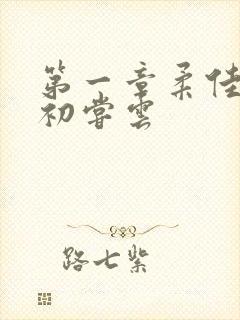 第一章柔佳
初尝云
路七紫